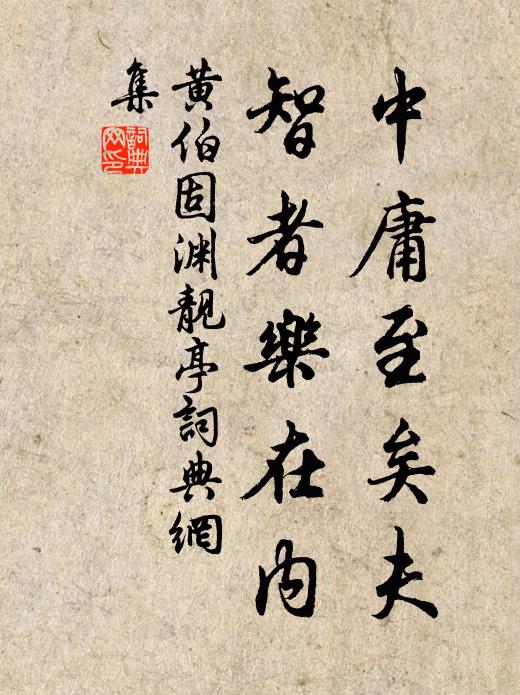 中庸至矣夫
智者樂在内
黃伯固渊靚亭詞典網
集
詞典
网印